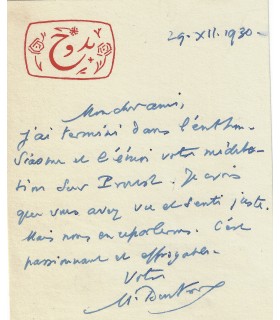 بدوح
29. XII. 1930 -
Mon cher ami,
J'ai terminé dans l'enthou-
siasme et l'émoi votre médita-
tion sur Proust. Je crois
que vous avez vu et senti juste.
Mais nous en reparlerons. C'est
passionnant et effroyable.
Votre